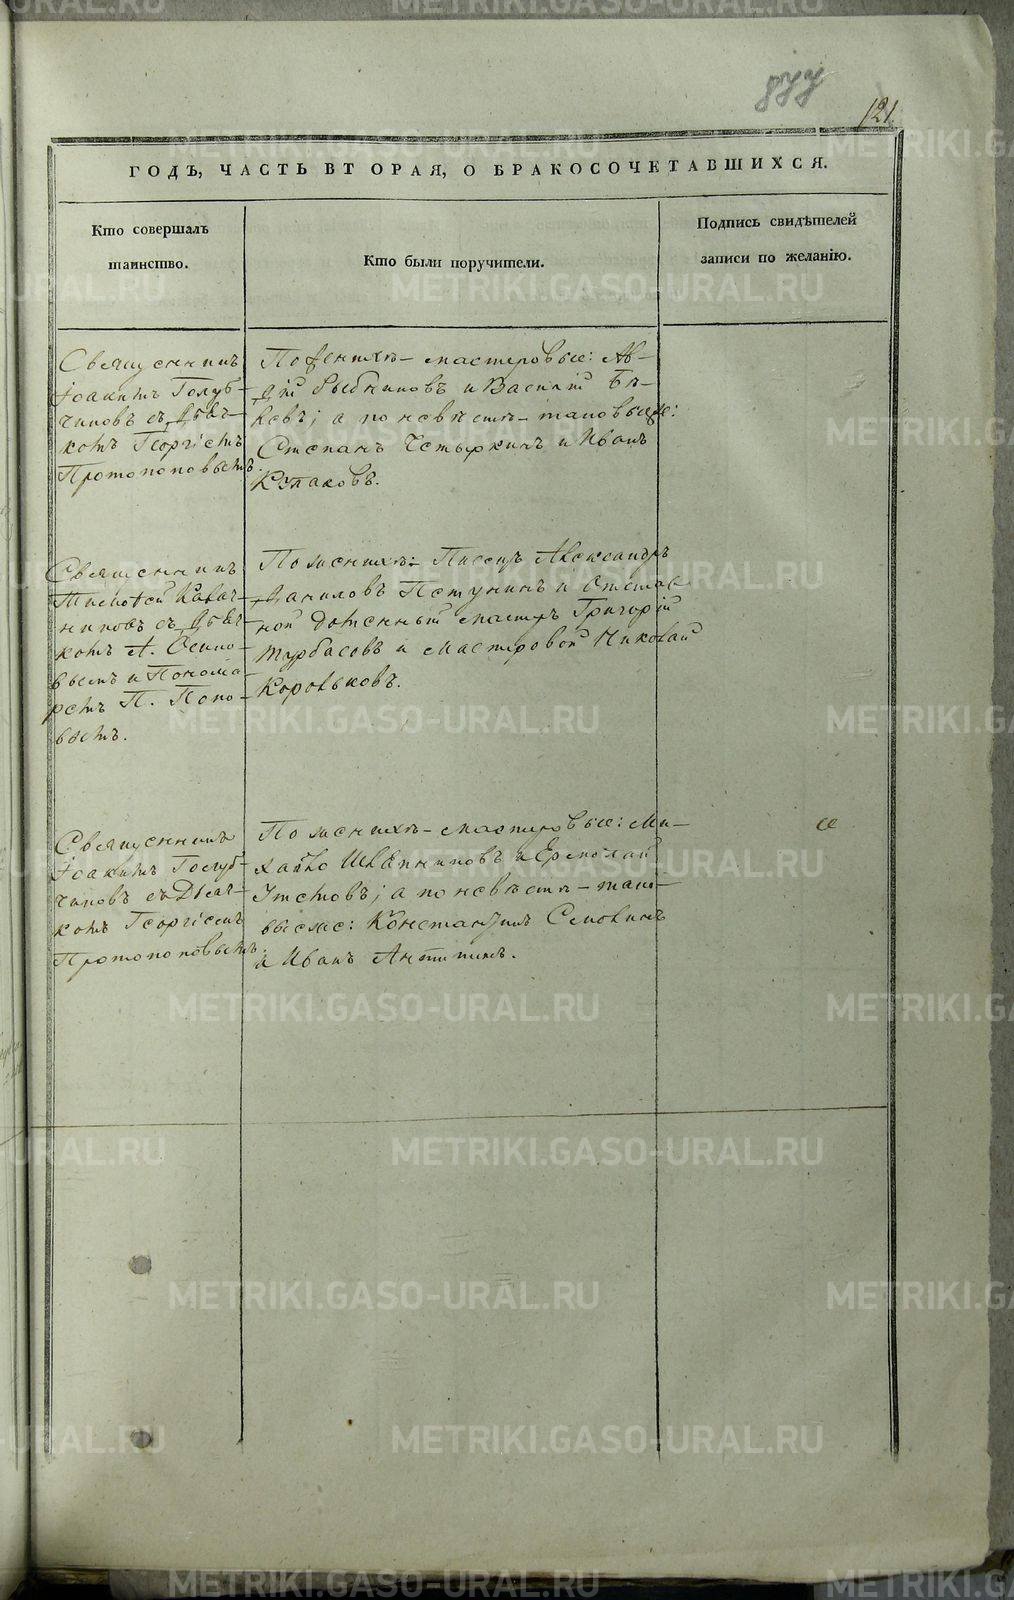 877
121
ГОДЪ, ЧАСТЬ ВТОРАЯ, О БРАКОСОЧЕТАВШИХСЯ.
Кто совершалъ
таинство.
Кто были поручители.
Подпись свидѣтелей
записи по желанію.
Священникъ
Іоакимъ Голуб-
чиковъ съ Дьяч-
комъ Георгіемъ
Протопоповымъ.
По женихѣ – мастеровые: Ав-
дій Рыбниковъ и Василій Бы-
ковъ; а по невѣстѣ – таковые же:
Степанъ Чстыркинъ и Иванъ
Казаковъ.
Священникъ
Тимофей Кала-
чниковъ съ Дьяч-
комъ А. Осипо-
вымъ и Понома-
ремъ П. Попо-
вымъ.
По женихѣ: Писецъ Александръ
Даниловъ Петунинъ и Отстав-
ной Доменный мастеръ Григорій
Турбасовъ и мастеровой Николай
Коровьковъ.
Священникъ
Іоакимъ Голуб-
чиковъ съ Дьяч-
комъ Георгіемъ
Протопоповымъ.
По женихѣ – мастеровые: Ми-
хайло и Ермолай
Устовъ; а по невѣстѣ – тако-
вые же: Константинъ
и Иванъ Антипинъ.
METRIKI.GASO-URAL.RU